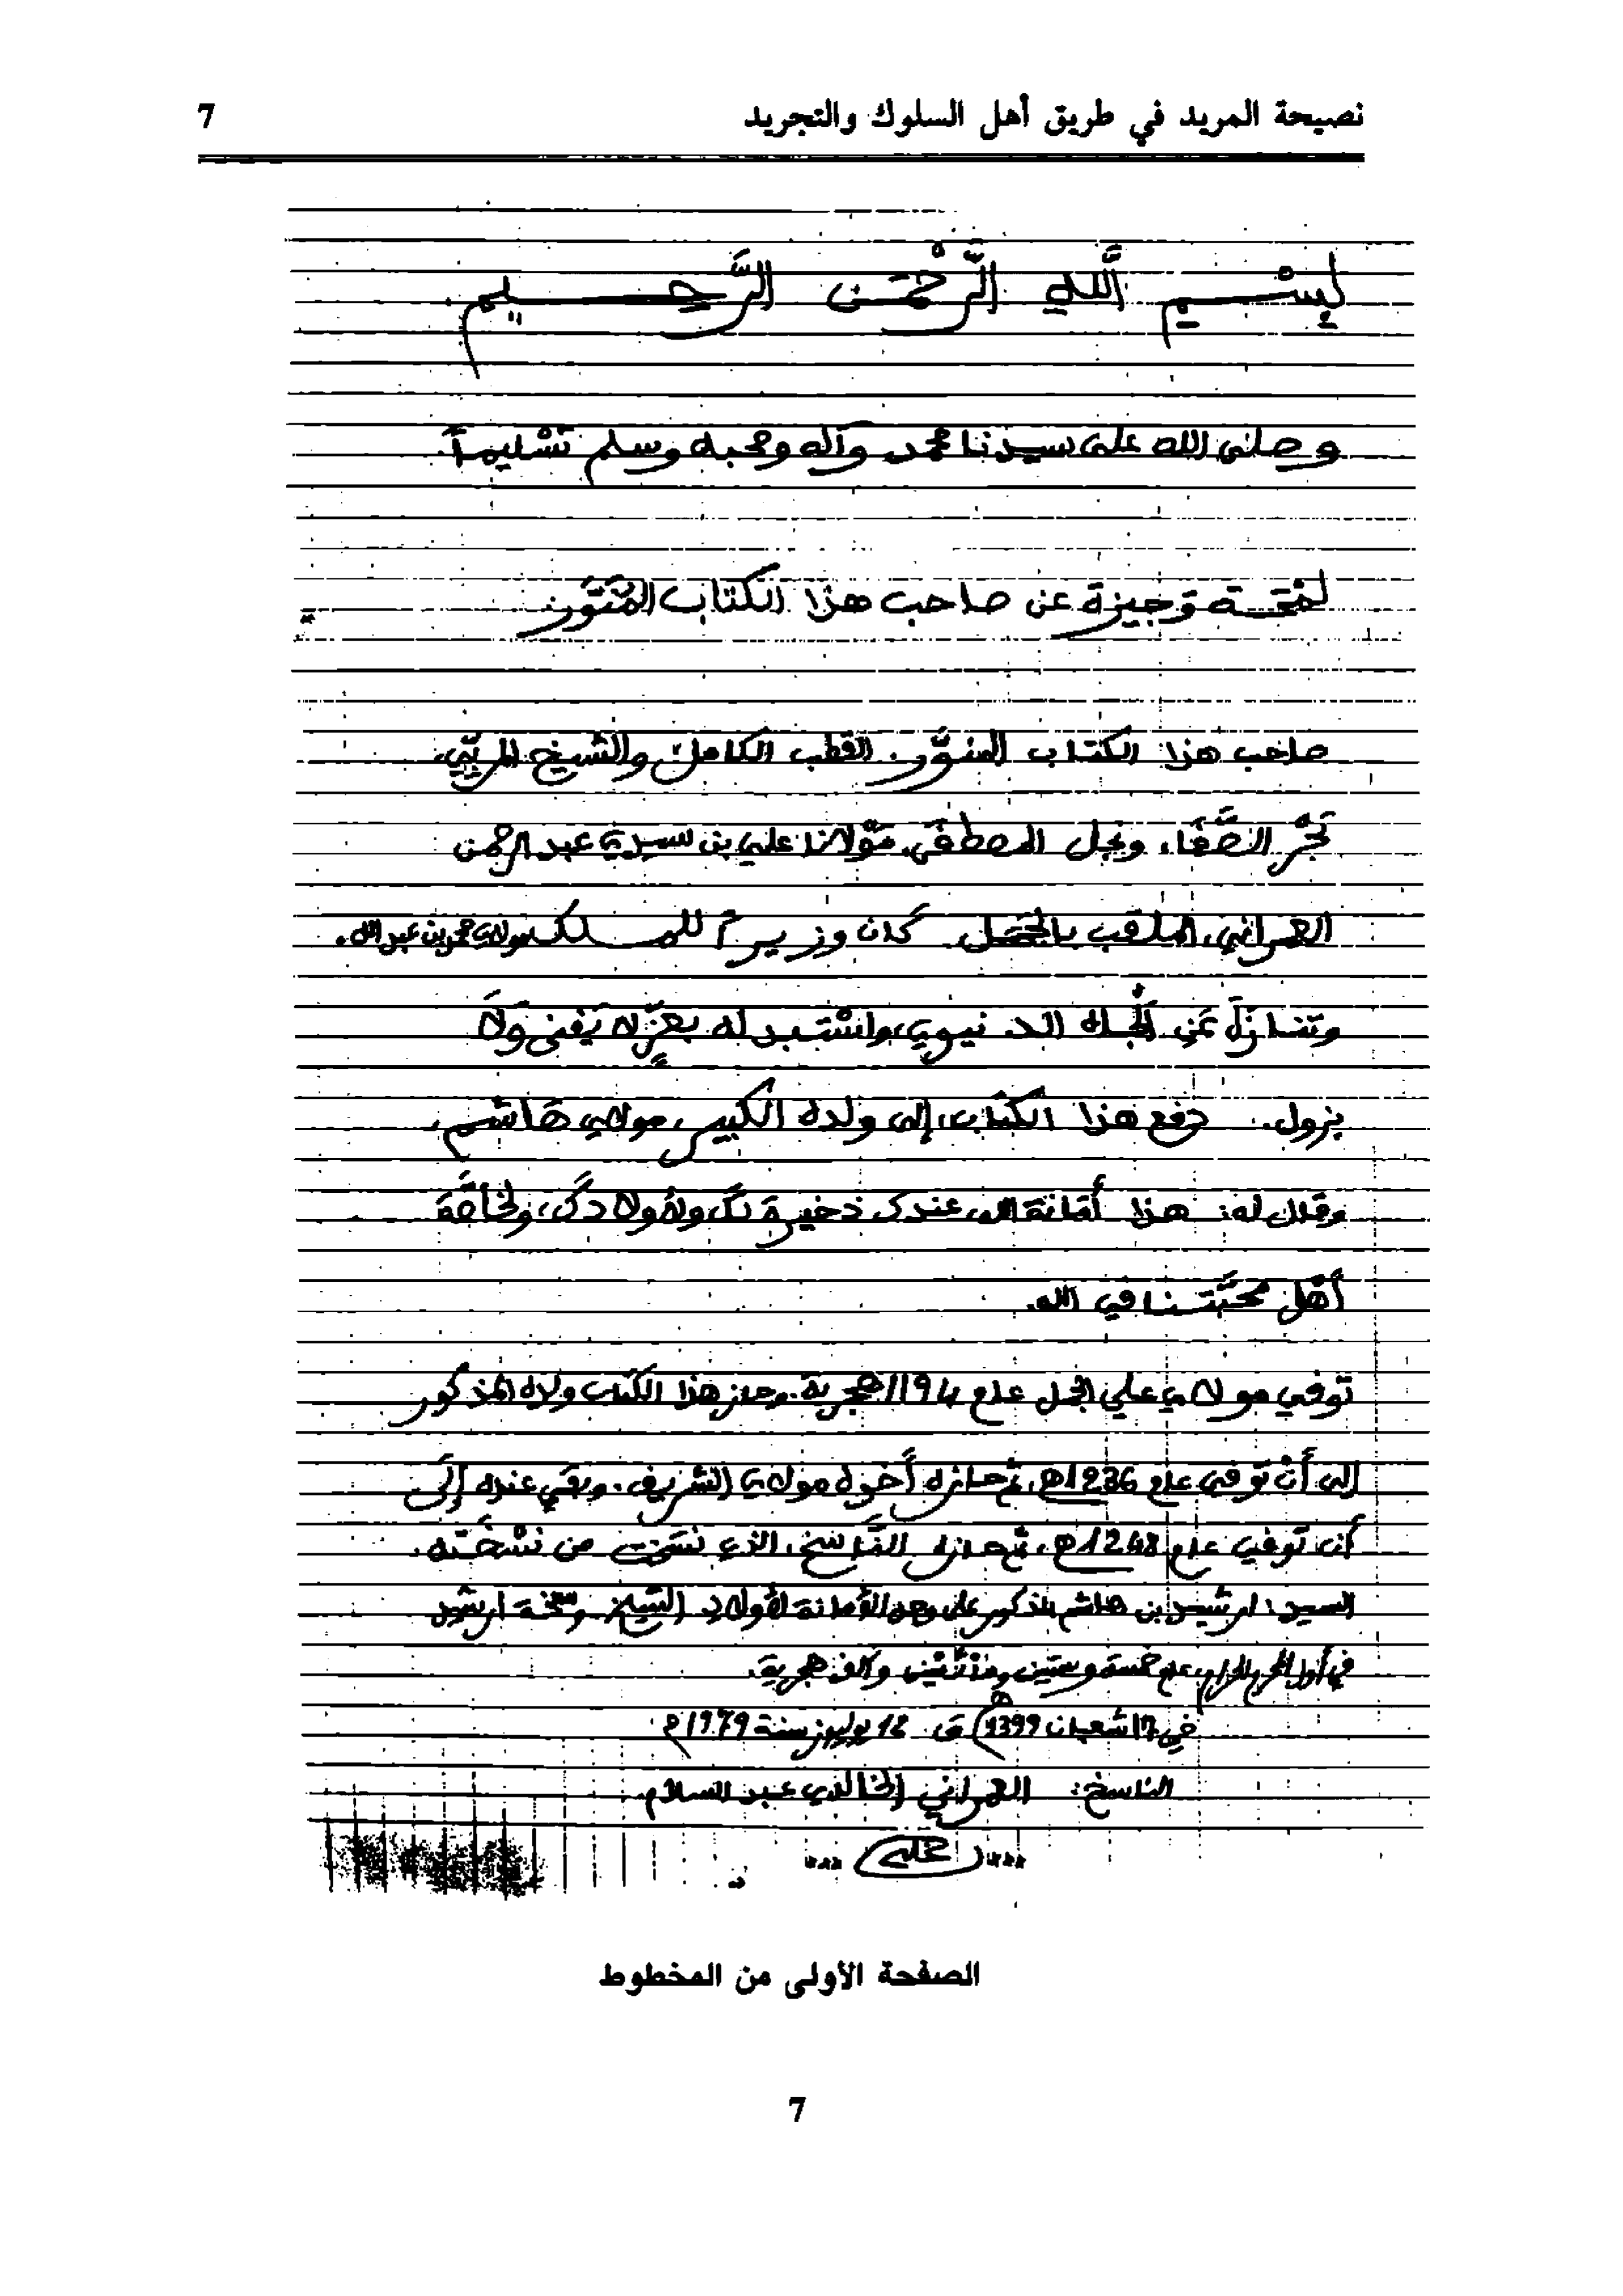 نصيحة المريد في طريق أهل السلوك والتجريد 7
بِسْمِ اللَّهِ الرَّحْمَنِ الرَّحِيمِ
وصلى الله على سيدنا محمد وآله وصحبه وسلم تسليماً.
لمحة وجيزة عن صاحب هذا الكتاب المنور
صاحب هذا الكتاب المنوَّر. القطب الكامل، والشيخ المربّي،
الصَّفَا، ونجل المصطفَى، مَوْلانا علي بن سيدي عبد الرحمن
العمراني، الملقب بالجمل. كان وزيرا للملك مولاي محمد بن عبد الله.
وتنازلَ عَنِ الجاه الدنيوي، واسْتبدله بعزٍّ لا يَفنى ولا
يزول. دفع هذا الكتاب، إلى ولده الكبير، مولاي هاشم،
وقال له: هذا أمانة الله عندك ذخيرة لك ولأولادك، ولخاصَّة
أهل محبَّتنا في الله.
توفي مولاي علي الجمل عام 1194 هجرية. وحاز هذا الكتاب ولده المذكور
إلى أنْ توفي عام 1236هـ، ثم حازه أخوه مولاي الشريف. وبقي عنده إلى
أن توفي عام 1248هـ، ثم حازه النَّاسخ، الذي نسخت من نسْخَته.
السيد: ارشيد بن هاشم المذكور على وجه الأمانة لأولاد الشيخ. ونسخة ارشيد
في أول المحرم الحرام، عام خمسة وستين ومائتين وألف هجرية.
في 17 شعبان 1399هـ ق 12 يوليوز سنة 1979م
الناسخ: العمراني الخالدي عبد السلام
الصفحة الأولى من المخطوط
7